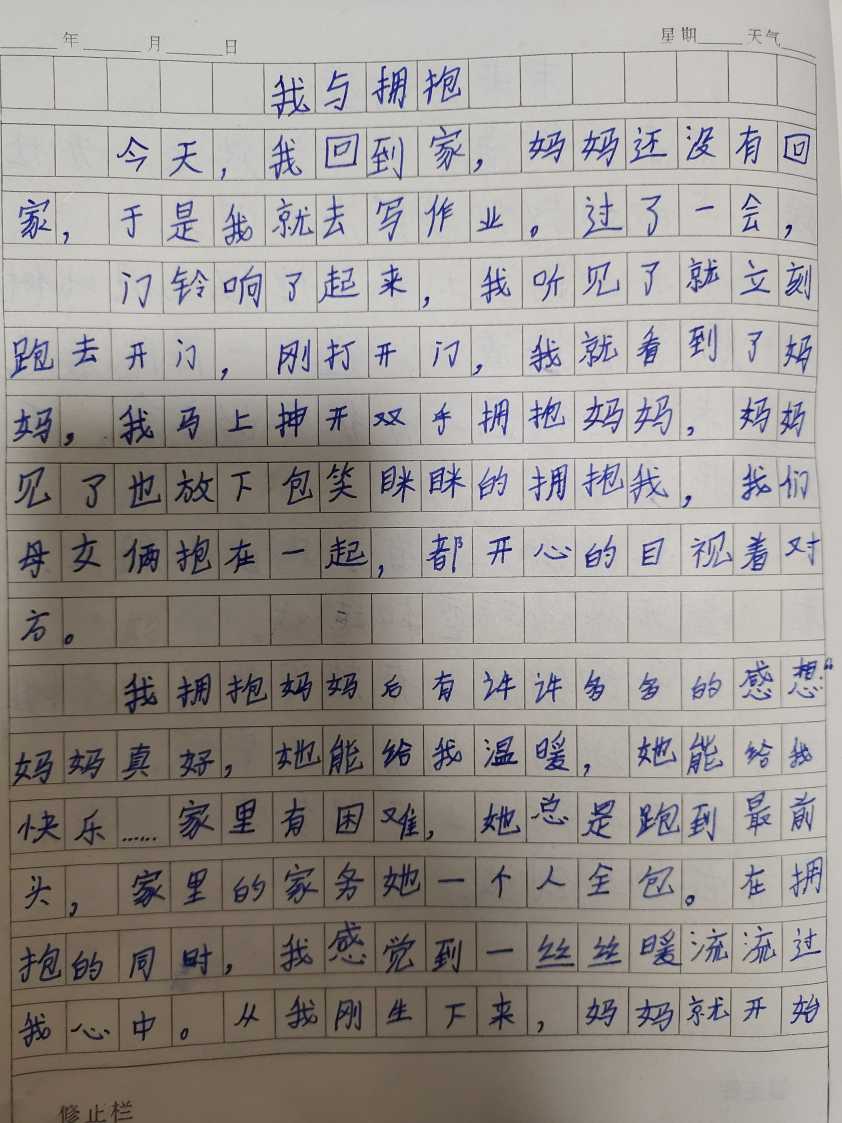 年 月 日 星期 天气
我与拥抱
今天，我回到家，妈妈还没有回
家，于是我就去写作业。过了一会，
门铃响了起来，我听见了就立刻
跑去开门，刚打开门，我就看到了妈
妈，我马上抻开双手拥抱妈妈，妈妈
见了也放下包笑眯眯的拥抱我，我们
母女俩抱在一起，都开心的目视着对
方。
我拥抱妈妈后有许许多多的感想“
妈妈真好，她能给我温暖，她能给我
快乐……家里有困难，她总是跑到最前
头，家里的家务她一个人全包。在拥
抱的同时，我感觉到一丝丝暖流流过
我心中。从我刚生下来，妈妈就开始
修止栏